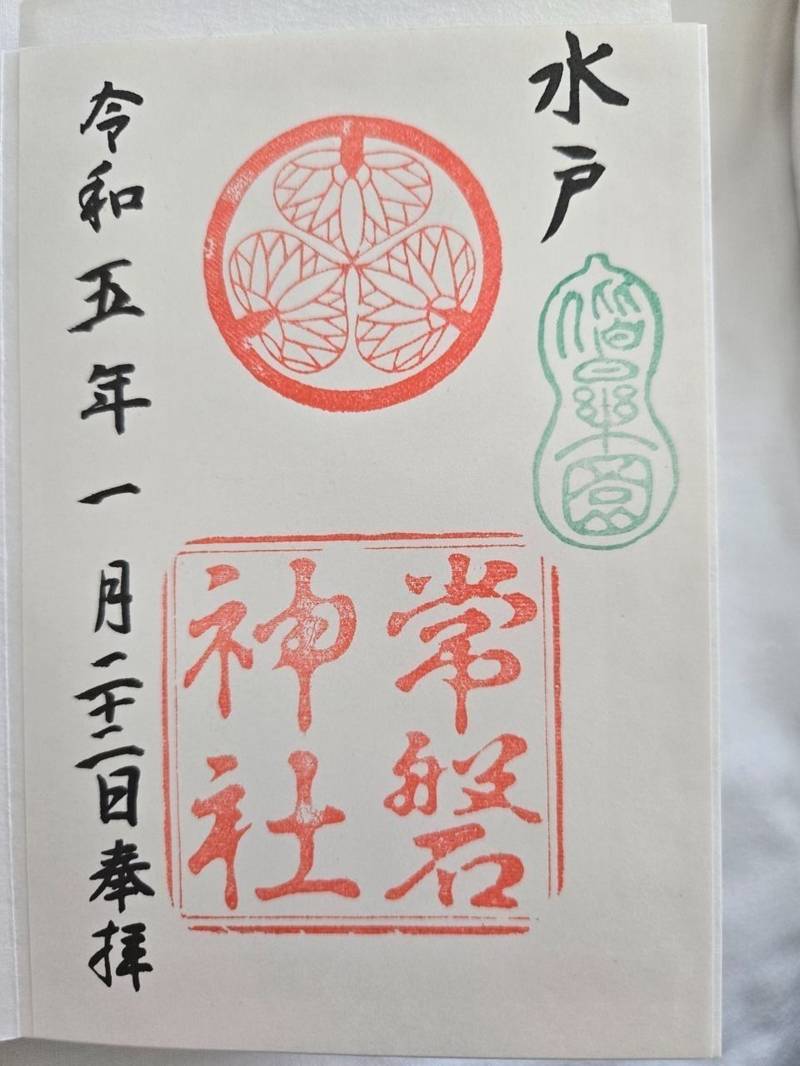 水戸
偕楽園
常磐
神社
令和五年一月二十二日奉拝